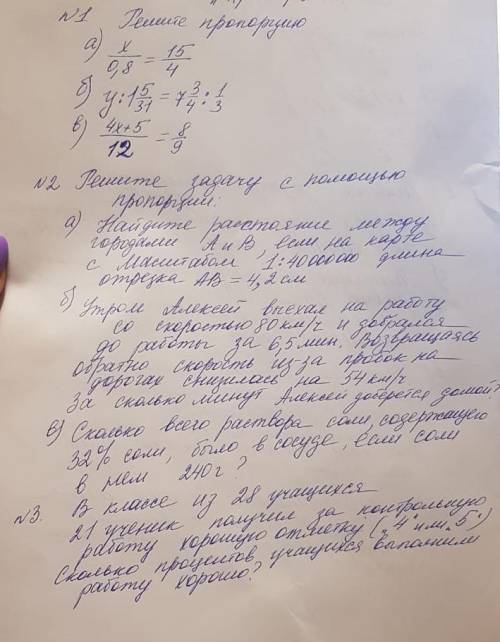 №1 Решите пропорцию
а) x/0,8 = 15/4
б) y : 1 5/31 = 7 3/4 : 1/3
в) 4x+5/12 = 8/9
№2 Решите задачу с помощью
пропорции:
а) Найдите расстояние между
городами А и В, если на карте
с масштабом 1:4000000 длина
отрезка АВ = 4,2 см
б) Утром Алексей выехал на работу
со скоростью 80 км/ч и добрался
до работы за 6,5 мин. Возвращаясь
обратно скорость из-за пробок на
дорогах снизилась на 54 км/ч
За сколько минут Алексей доберется домой?
в) Сколько всего раствора соли, содержащую
32% соли, было в сосуде, если соли
в нем 240г?
№3. В классе из 28 учащихся
21 ученик получил за контрольную
работу хорошую отметку („4" или „5")
Сколько процентов учащихся выполнили
работу хорошо?